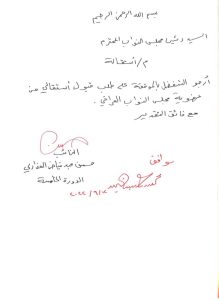 بسم الله الرحمن الرحيم
السيد رئيس مجلس النواب المحترم
م/ استقالة
أرجو التفضل بالموافقة على طلب قبول استقالتي من
عضوية مجلس النواب العراقي.
مع فائق التقدير
النائب
موافق
الدورة الخامسة